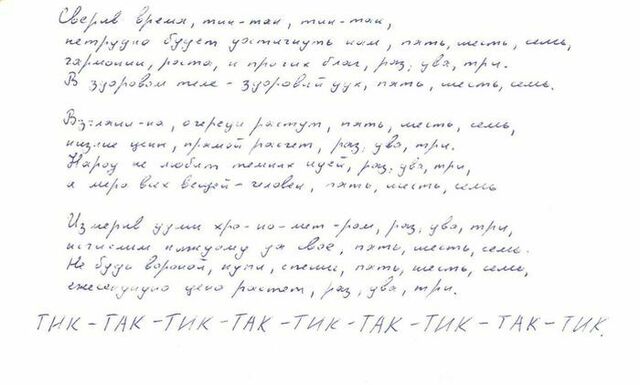 Сверив время, тик-так, тик-так,
нетрудно будет достигнуть нам, пять, шесть, семь,
гармонии, роста, и прочих благ, раз, два, три.
В здоровом теле - здоровый дух, пять, шесть, семь.
Взгляни-ка, очереди растут, пять, шесть, семь,
низкие цены, прямой расчет, раз, два, три.
Народ не любит темных идей, раз, два, три,
а мера всех вещей - человек, пять, шесть, семь
Измерив удми хро-но-мет-ром, раз, два, три,
исчислим каждому да свое, пять, шесть, семь.
Не будь вороной, купи, спеши, пять, шесть, семь,
ежесекундно цена растет, раз, два, три.
ТИК - ТАК - ТИК - ТАК - ТИК - ТАК - ТИК - ТАК - ТИК.